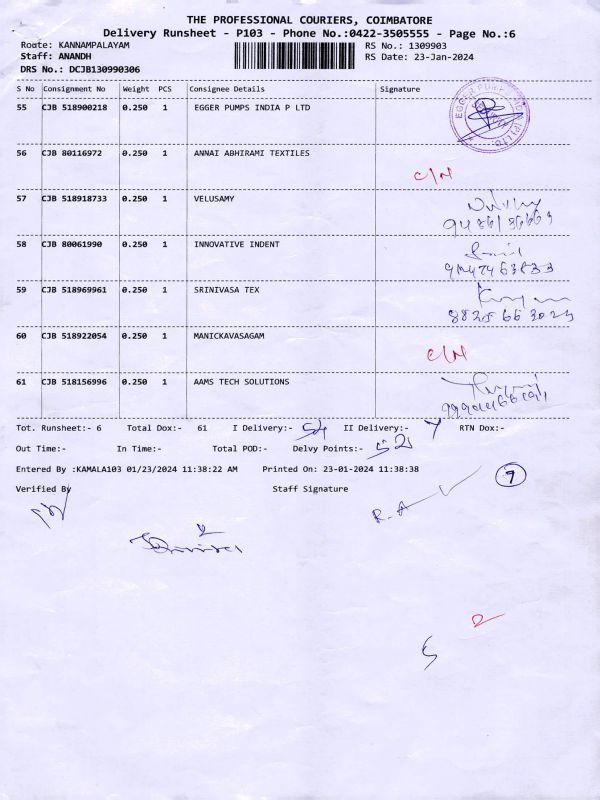 THE PROFESSIONAL COURIERS, COIMBATORE
Delivery Runsheet - P103 - Phone No.:0422-3505555 - Page No.:6
Route: KANNAMPALAYAM RS No.: 1309903
Staff: ANANDH RS Date: 23-Jan-2024
DRS No.: DCJB130990306
S No Consignment No Weight PCS Consignee Details Signature
55 CJB 518900218 0.250 1 EGGER PUMPS INDIA P LTD
56 CJB 80116972 0.250 1 ANNAI ABHIRAMI TEXTILES
C/N
57 CJB 518918733 0.250 1 VELUSAMY
58 CJB 80061990 0.250 1 INNOVATIVE INDENT
59 CJB 518969961 0.250 1 SRINIVASA TEX
60 CJB 518922054 0.250 1 MANICKAVASAGAM
C/N
61 CJB 518156996 0.250 1 AAMS TECH SOLUTIONS
Tot. Runsheet:- 6 Total Dox:- 61 I Delivery:- 54 II Delivery:- 7 RTN Dox:-
Out Time:- In Time:- Total POD:- Delvy Points:- 52
Entered By :KAMALA103 01/23/2024 11:38:22 AM Printed On: 23-01-2024 11:38:38
Verified By Staff Signature
7
R.A
2
5